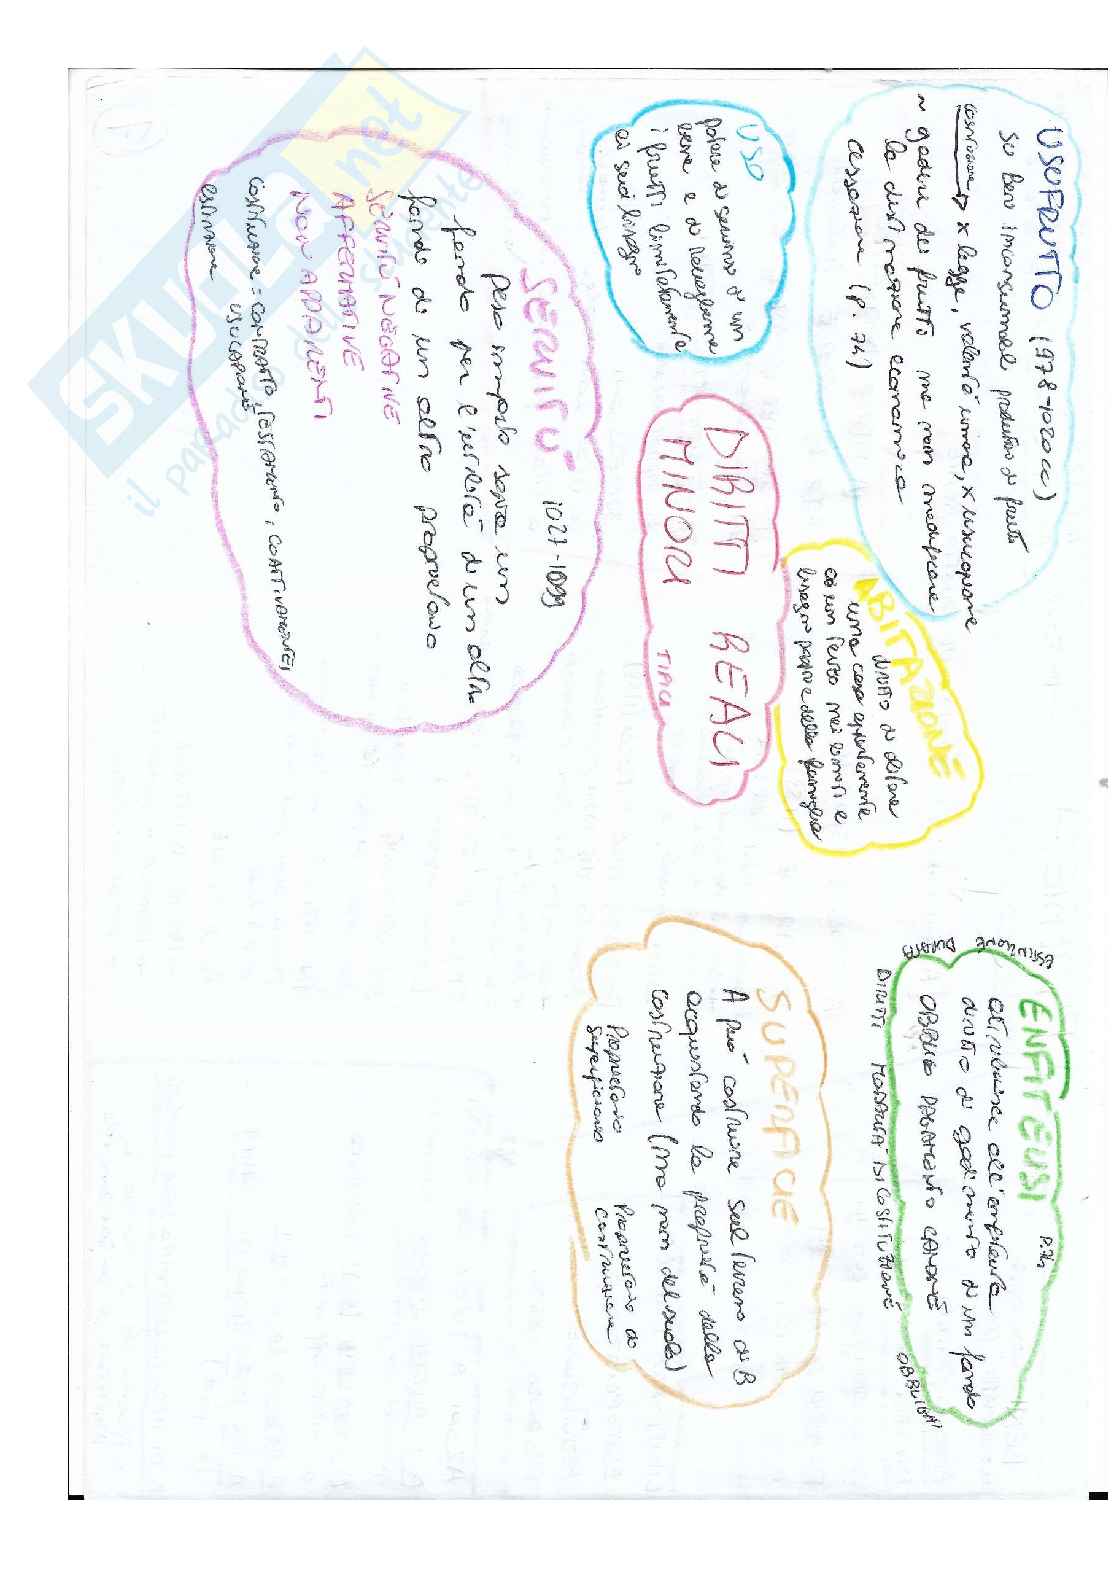 USUFRUTTO (978-1020 cc)
Su beni inconsumabili produttivi di frutti
costituzione → x legge, volontà umana, x usucapione
~ godere dei frutti ma non modificare
la destinazione economica
cessazione (p. 74)
USO
potere di servirsi di un
bene e di raccoglierne
i frutti limitatamente
ai suoi bisogni
ABITAZIONE
diritto di abitare
una casa
nei limiti e
bisogni propri e della famiglia
DIRITTI REALI
MINORI
TIPICI
SERVITÙ 1027-1099
peso imposto sopra un
fondo per l'utilità di un altro
fondo di un altro proprietario
SERVITÙ NEGATIVE
AFFERMATIVE
NON APPARENTI
COSTITUZIONE = CONTRATTO, TESTAMENTO, COATTIVAMENTE,
USUCAPIONE
ESTINZIONE
ENFITEUSI P. 74
attribuisce all'enfiteuta
diritto di godimento di un fondo
OBBLIGO PAGAMENTO CANONE
ESTINZIONE DURATA
DIRITTI MODALITÀ DI COSTITUZIONE
OBBLIGHI
SUPERFICIE
A può costruire sul terreno di B
acquistando la proprietà della
costruzione (ma non del suolo)
Proprietario
superficiario
Proprietario di
costruzione
SKUOLA.net
il paradiso dello studente